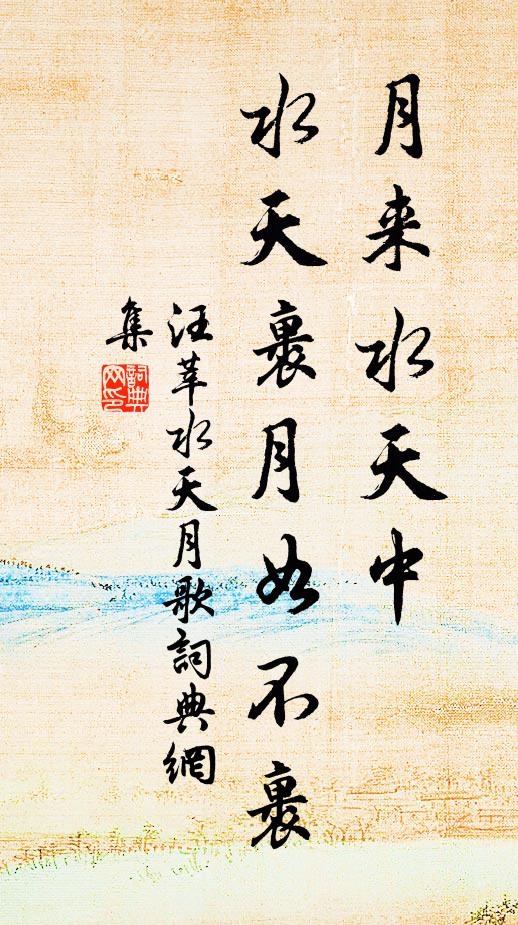 月来水天中
水天裹月如不裹
汪莘水天月歌詞典網
集
詞典
网印